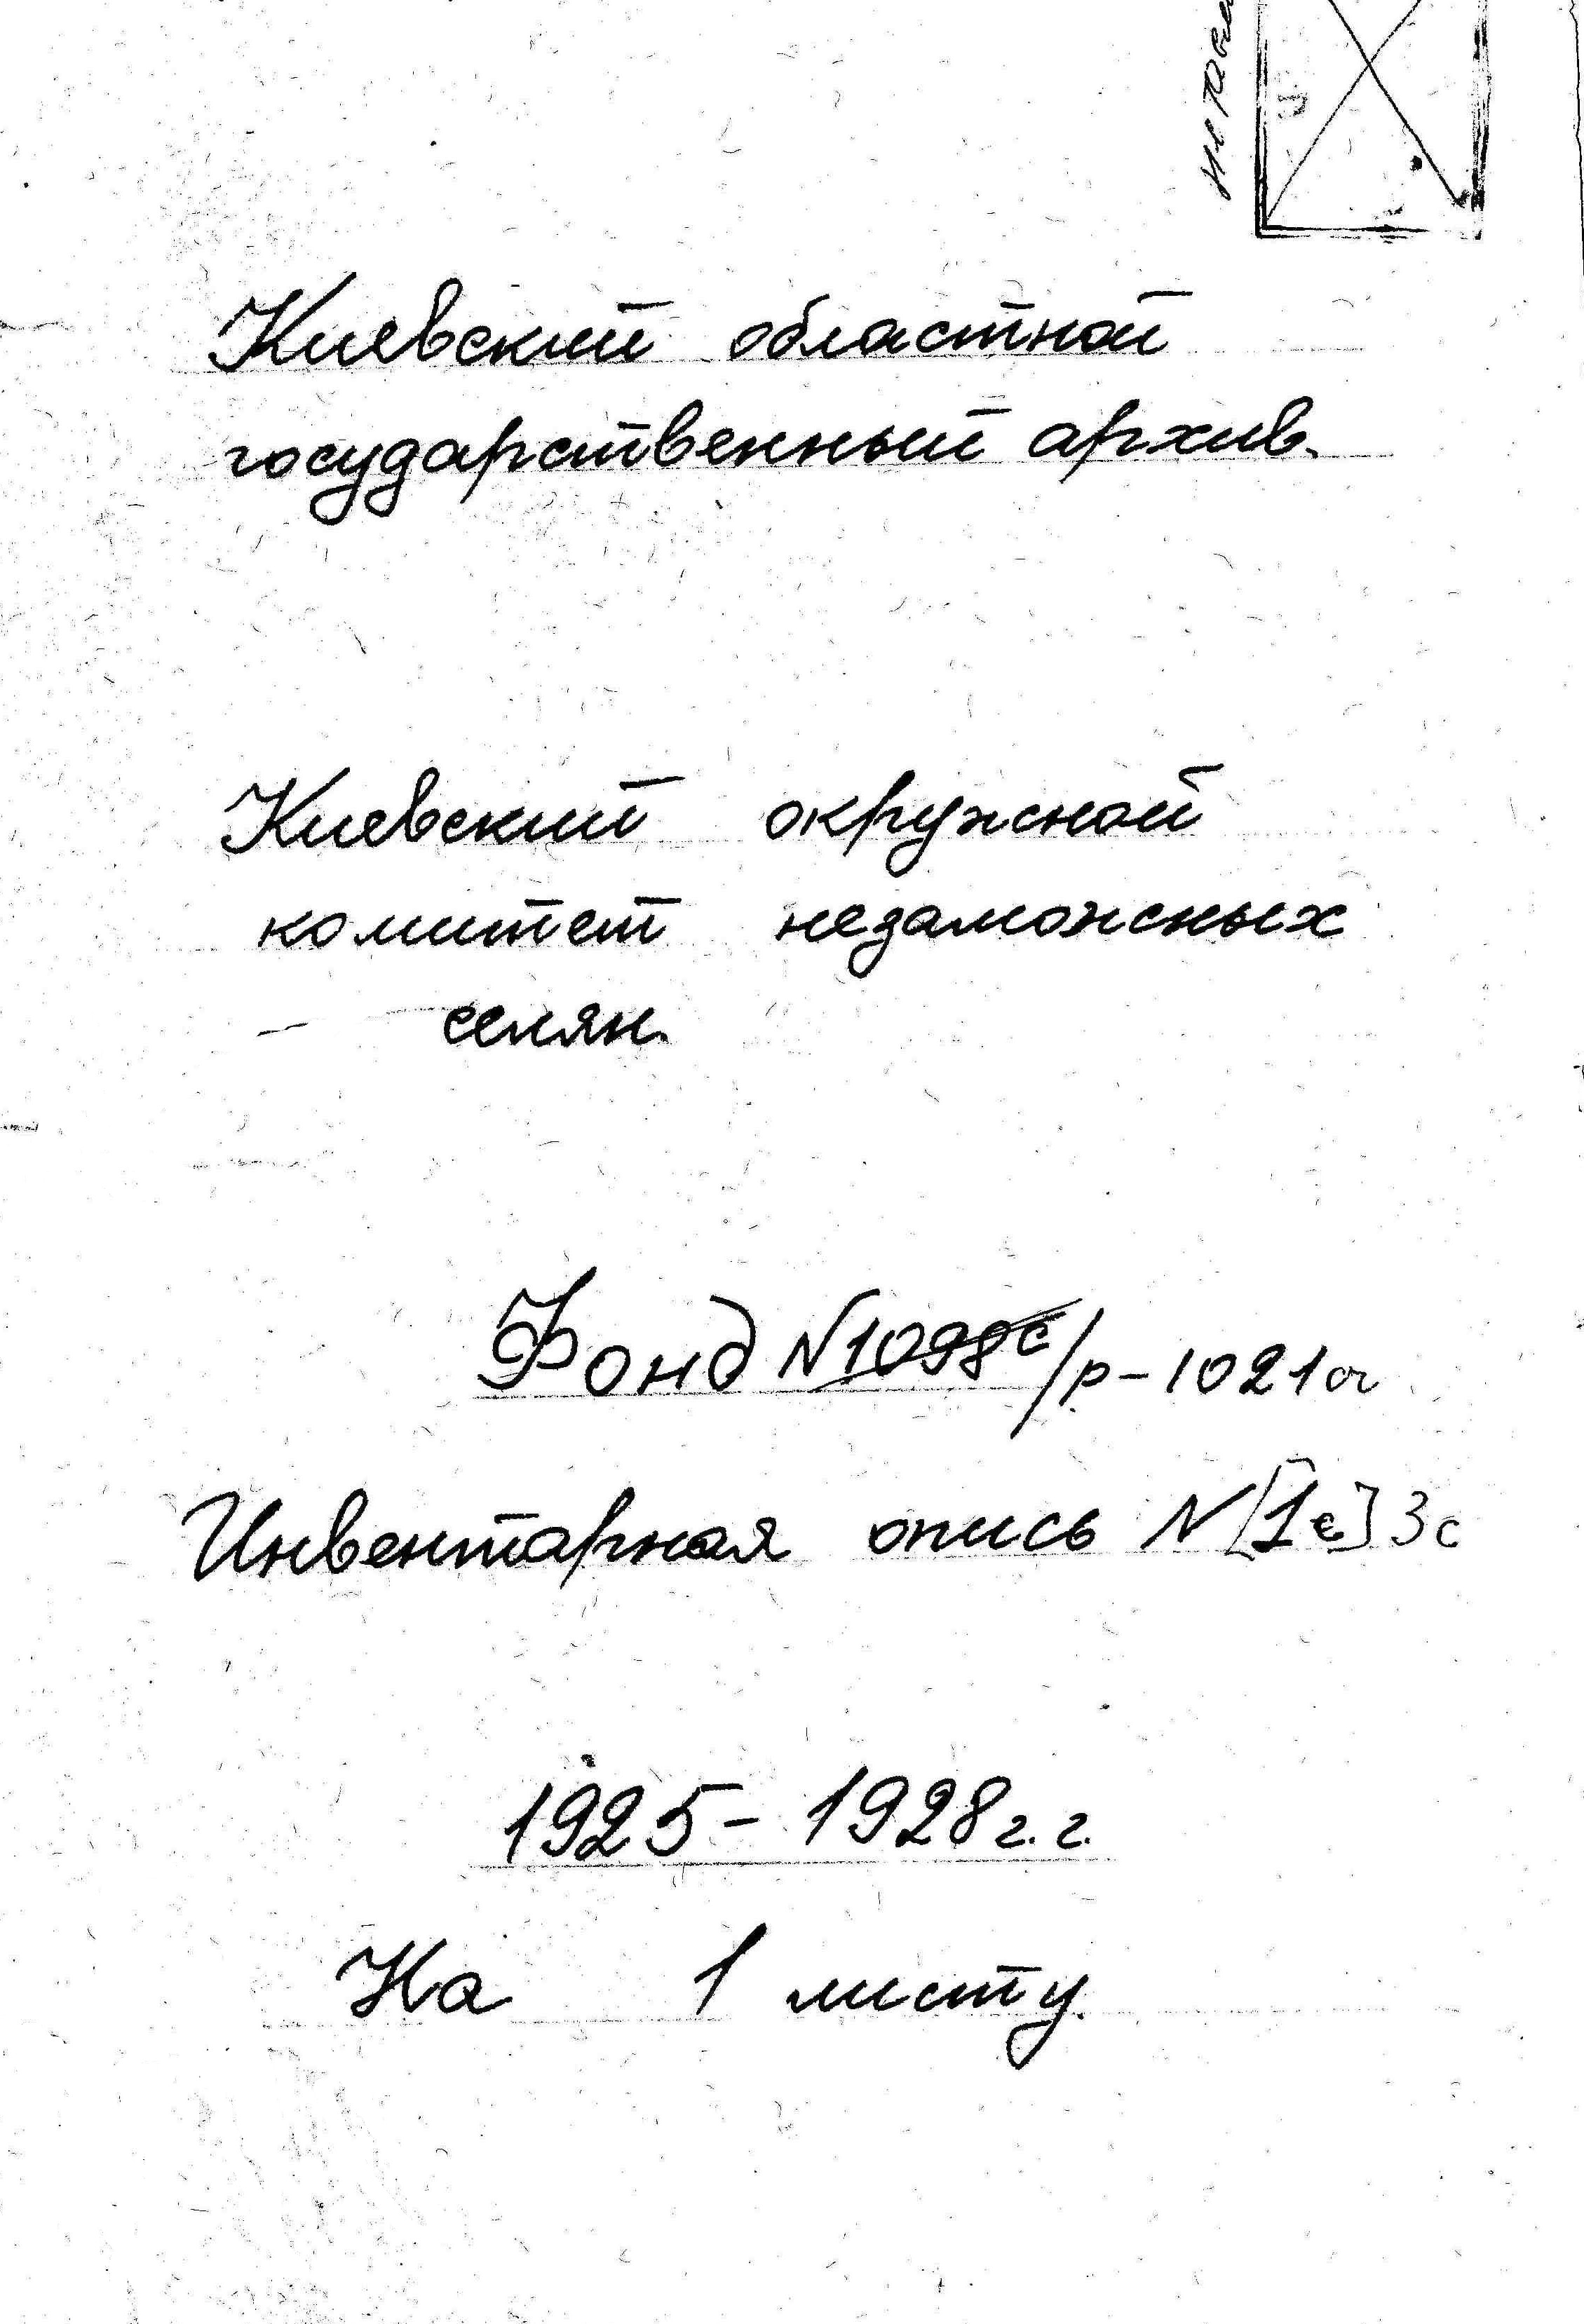 Киевский областной
государственный архив.
Киевский окружной
комитет незаможных
селян.
Фонд N1098с/р-1021а
Инвентарная опись N[1с] 3с
1925-1928 г.г.
На 1 листу.